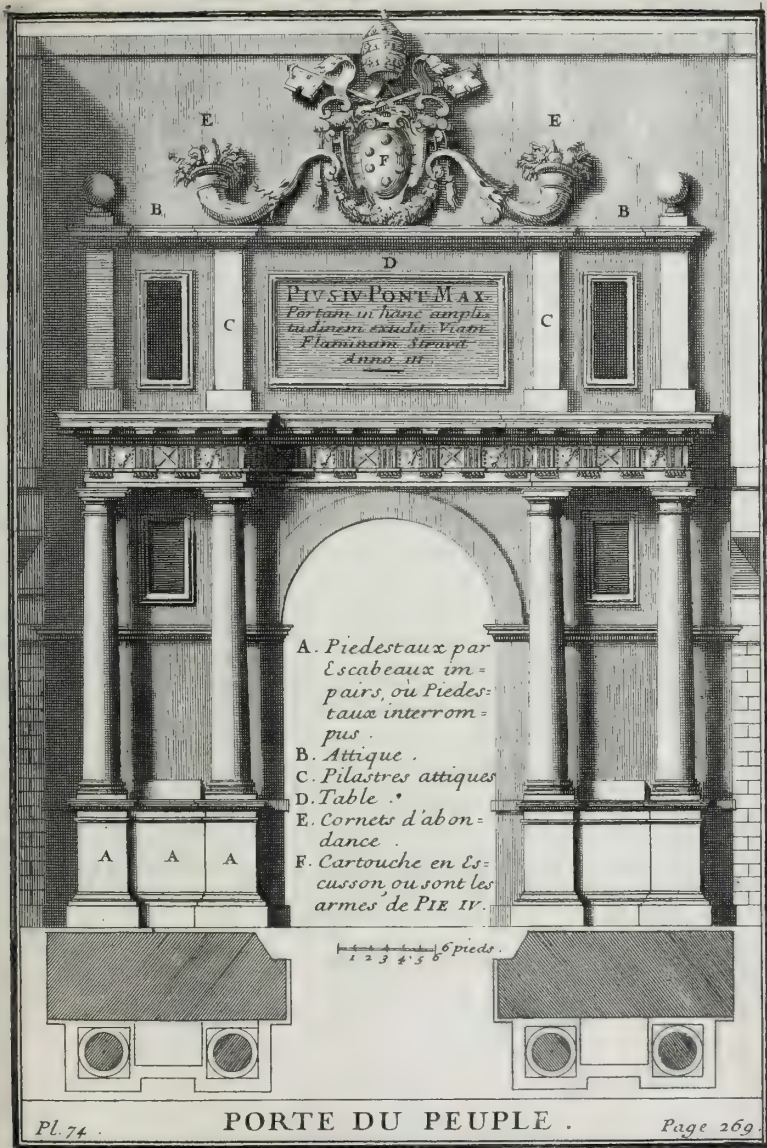 E E
F
B B
D
PIVS·IV·PONT·MAX·
Portam in hanc ampli-
tudinem extulit. Viam
Flaminam Stravit
Anno. III.
C C
A. Piedestaux par
Escabeaux im=
pairs, où Piedes=
taux interrom=
pus.
B. Attique.
C. Pilastres attiques
D. Table.
E. Cornets d'abon=
dance.
F. Cartouche en Es=
cusson, ou sont les
armes de PIE IV.
A A A
6 pieds.
1 2 3 4 5 6
PORTE DU PEUPLE.
Pl. 74. Page 269.